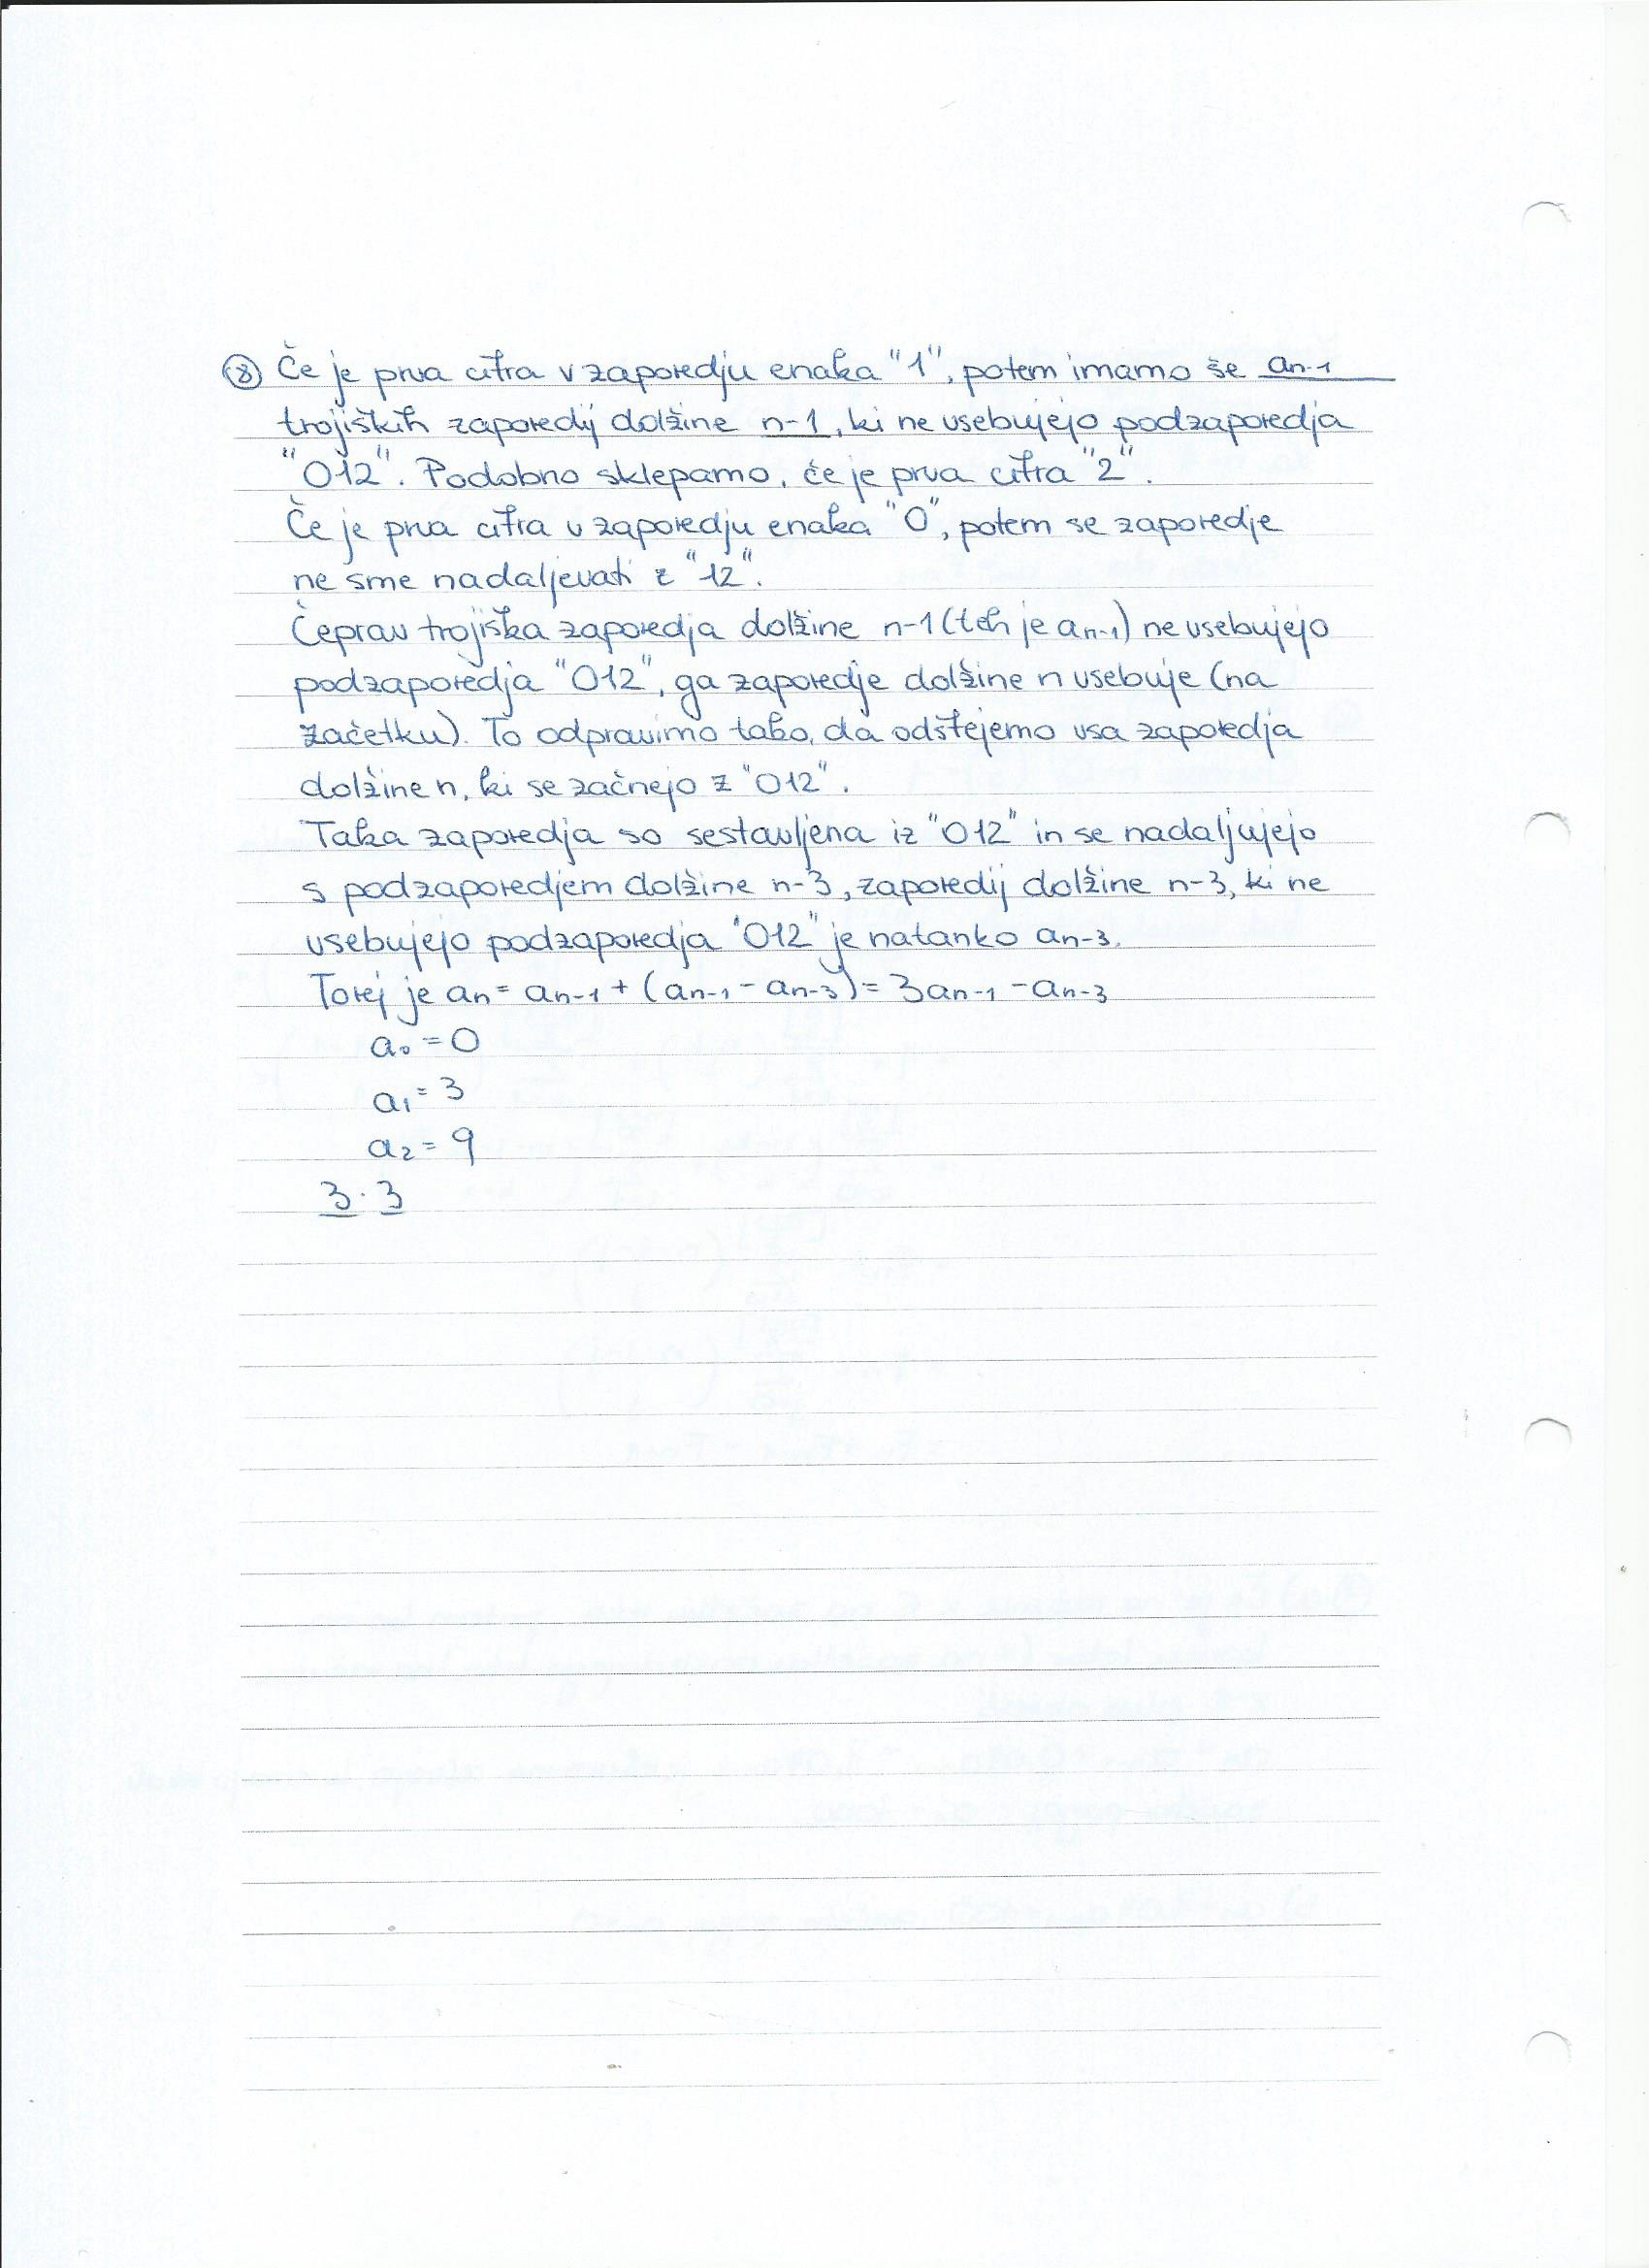 ⑧ Če je prva cifra v zaporedju enaka "1", potem imamo še an-1
trojiških zaporedij dolžine n-1, ki ne vsebujejo podzaporedja
"012". Podobno sklepamo, če je prva cifra "2".
Če je prva cifra v zaporedju enaka "0", potem se zaporedje
ne sme nadaljevati z "12".
Čeprav trojiška zaporedja dolžine n-1 (teh je an-1) ne vsebujejo
podzaporedja "012", ga zaporedje dolžine n vsebuje (na
začetku). To odpravimo tako, da odštejemo vsa zaporedja
dolžine n, ki se začnejo z "012".
Taka zaporedja so sestavljena iz "012" in se nadaljujejo
s podzaporedjem dolžine n-3, zaporedij dolžine n-3, ki ne
vsebujejo podzaporedja "012" je natanko an-3.
Torej je an = an-1 + (an-1 - an-3) = 3an-1 - an-3
a0 = 0
a1 = 3
a2 = 9
3 · 3